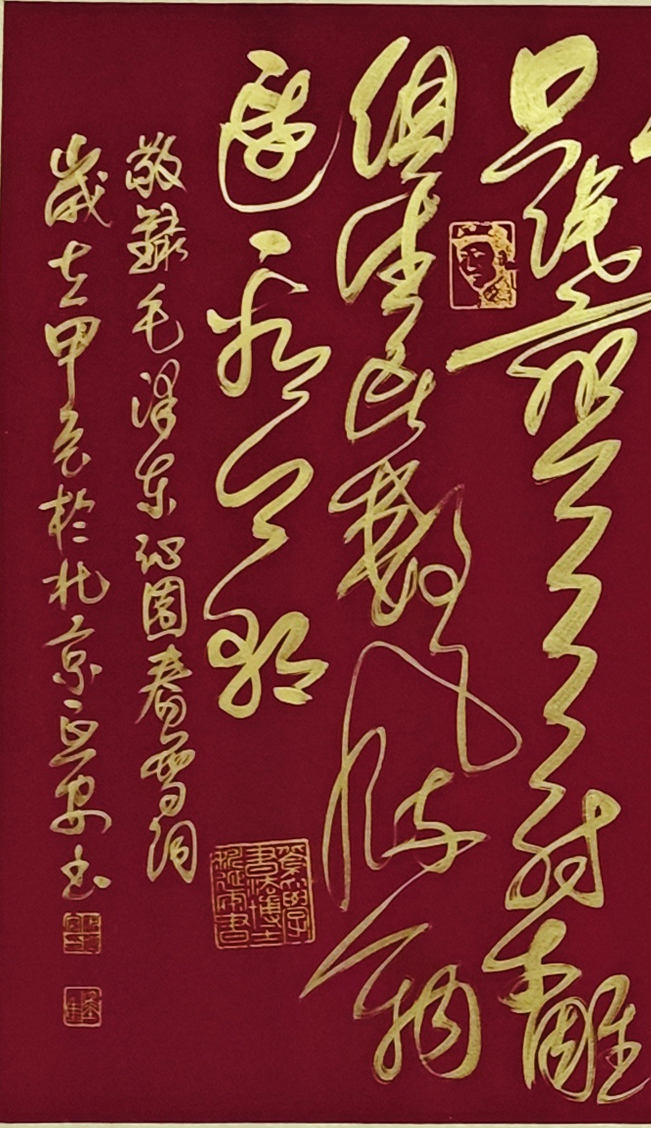 只識彎弓射大雕
俱往矣數風流人物
還看今朝
敬録毛澤东沁園春雪詞
歲在甲辰於北京延安书